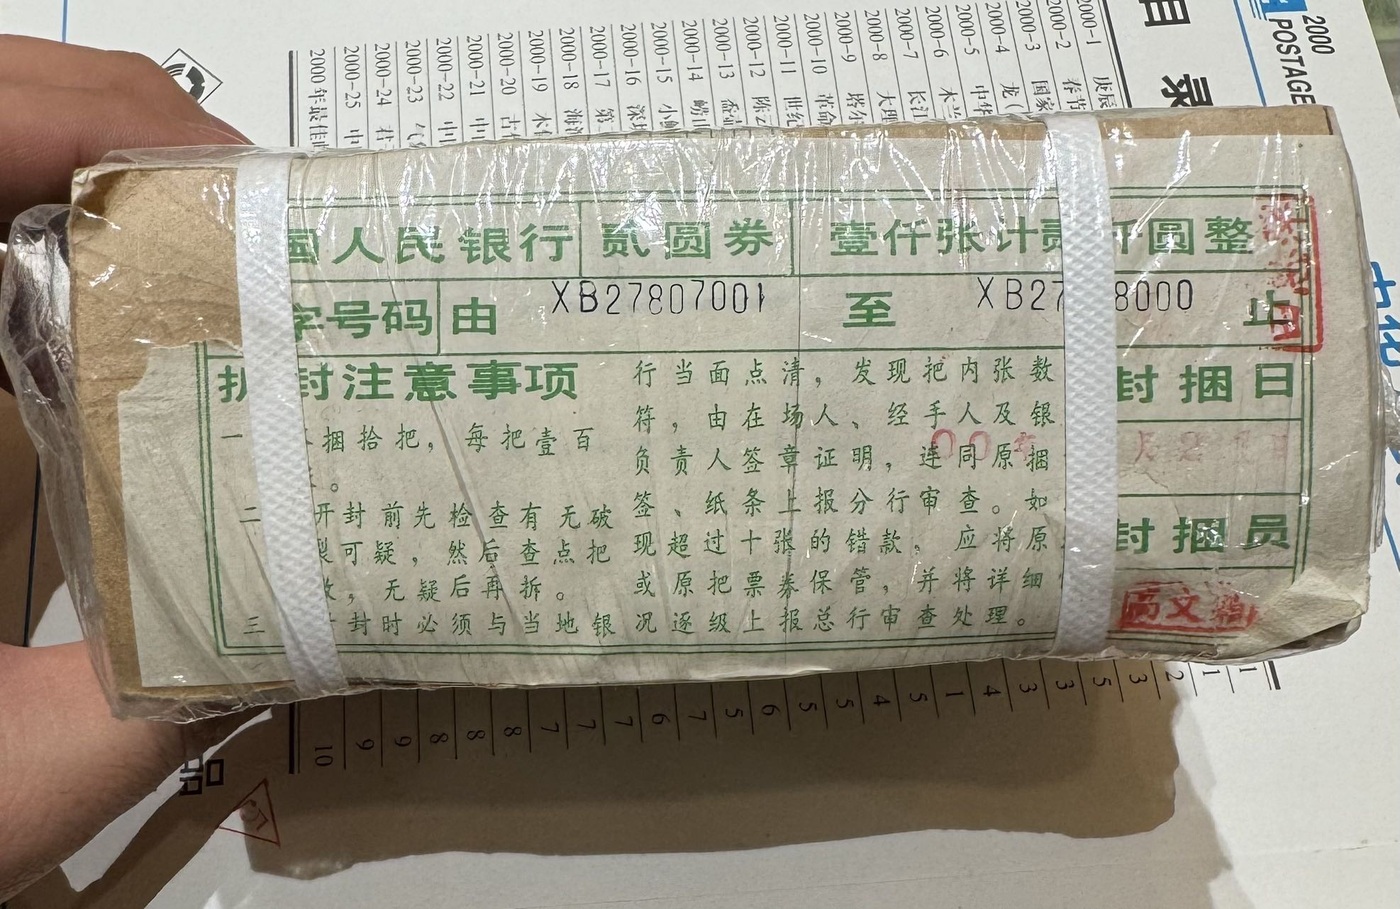 国人民银行 贰圆券 壹仟张计贰仟圆整
字号码 由 XB27807001 至 XB27 8000 止
拆封注意事项
一 捆拾把，每把壹百
。
二 开封前先检查有无破
裂可疑，然后查点把
，无疑后再拆。
三 封时必须与当地银
行当面点清，发现把内张数
符，由在场人、经手人及银
负责人签章证明，连同原捆
签、纸条上报分行审查。如
现超过十张的错款，应将原
或原把票券保管，并将详细
况逐级上报总行审查处理。
封捆日
封捆员
高文
目录
2000
POSTAGE
2000-1 庚辰
2000-2 春节
2000-3 国家
2000-4 龙（
2000-5 中华
2000-6 木兰
2000-7 长江
2000-8 大理
2000-9 塔尔
2000-10 革命
2000-11 世纪
2000-12 陈云
2000-13
2000-14 崂山
2000-15 小鲤
2000-16 深圳
2000-17 第
2000-18 海滨
2000-19 木
2000-20 古代
2000-21 中
2000-22 中
2000-23 气
2000-24 君
2000-25 中
2000年最佳
1
1
2
3
5
3
3
4
1
5
4
5
5
6
5
7
6
7
7
7
8
8
8
9
9
10
品